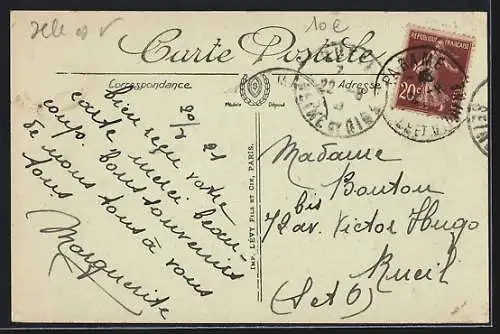 10e
Carte Postale
Correspondance
Adresse
Modèle Déposé
REPUBLIQUE FRANÇAISE
20c
SEINE ET OISE
20/8 21
bien reçu votre
carte merci beau-
coup. Bons souvenirs
de nous tous à vous
tous
Marguerite
IMP. LÉVY FILS ET CIE, PARIS.
Madame
Bouton
72 bis av. Victor Hugo
Rueil
(S et O)